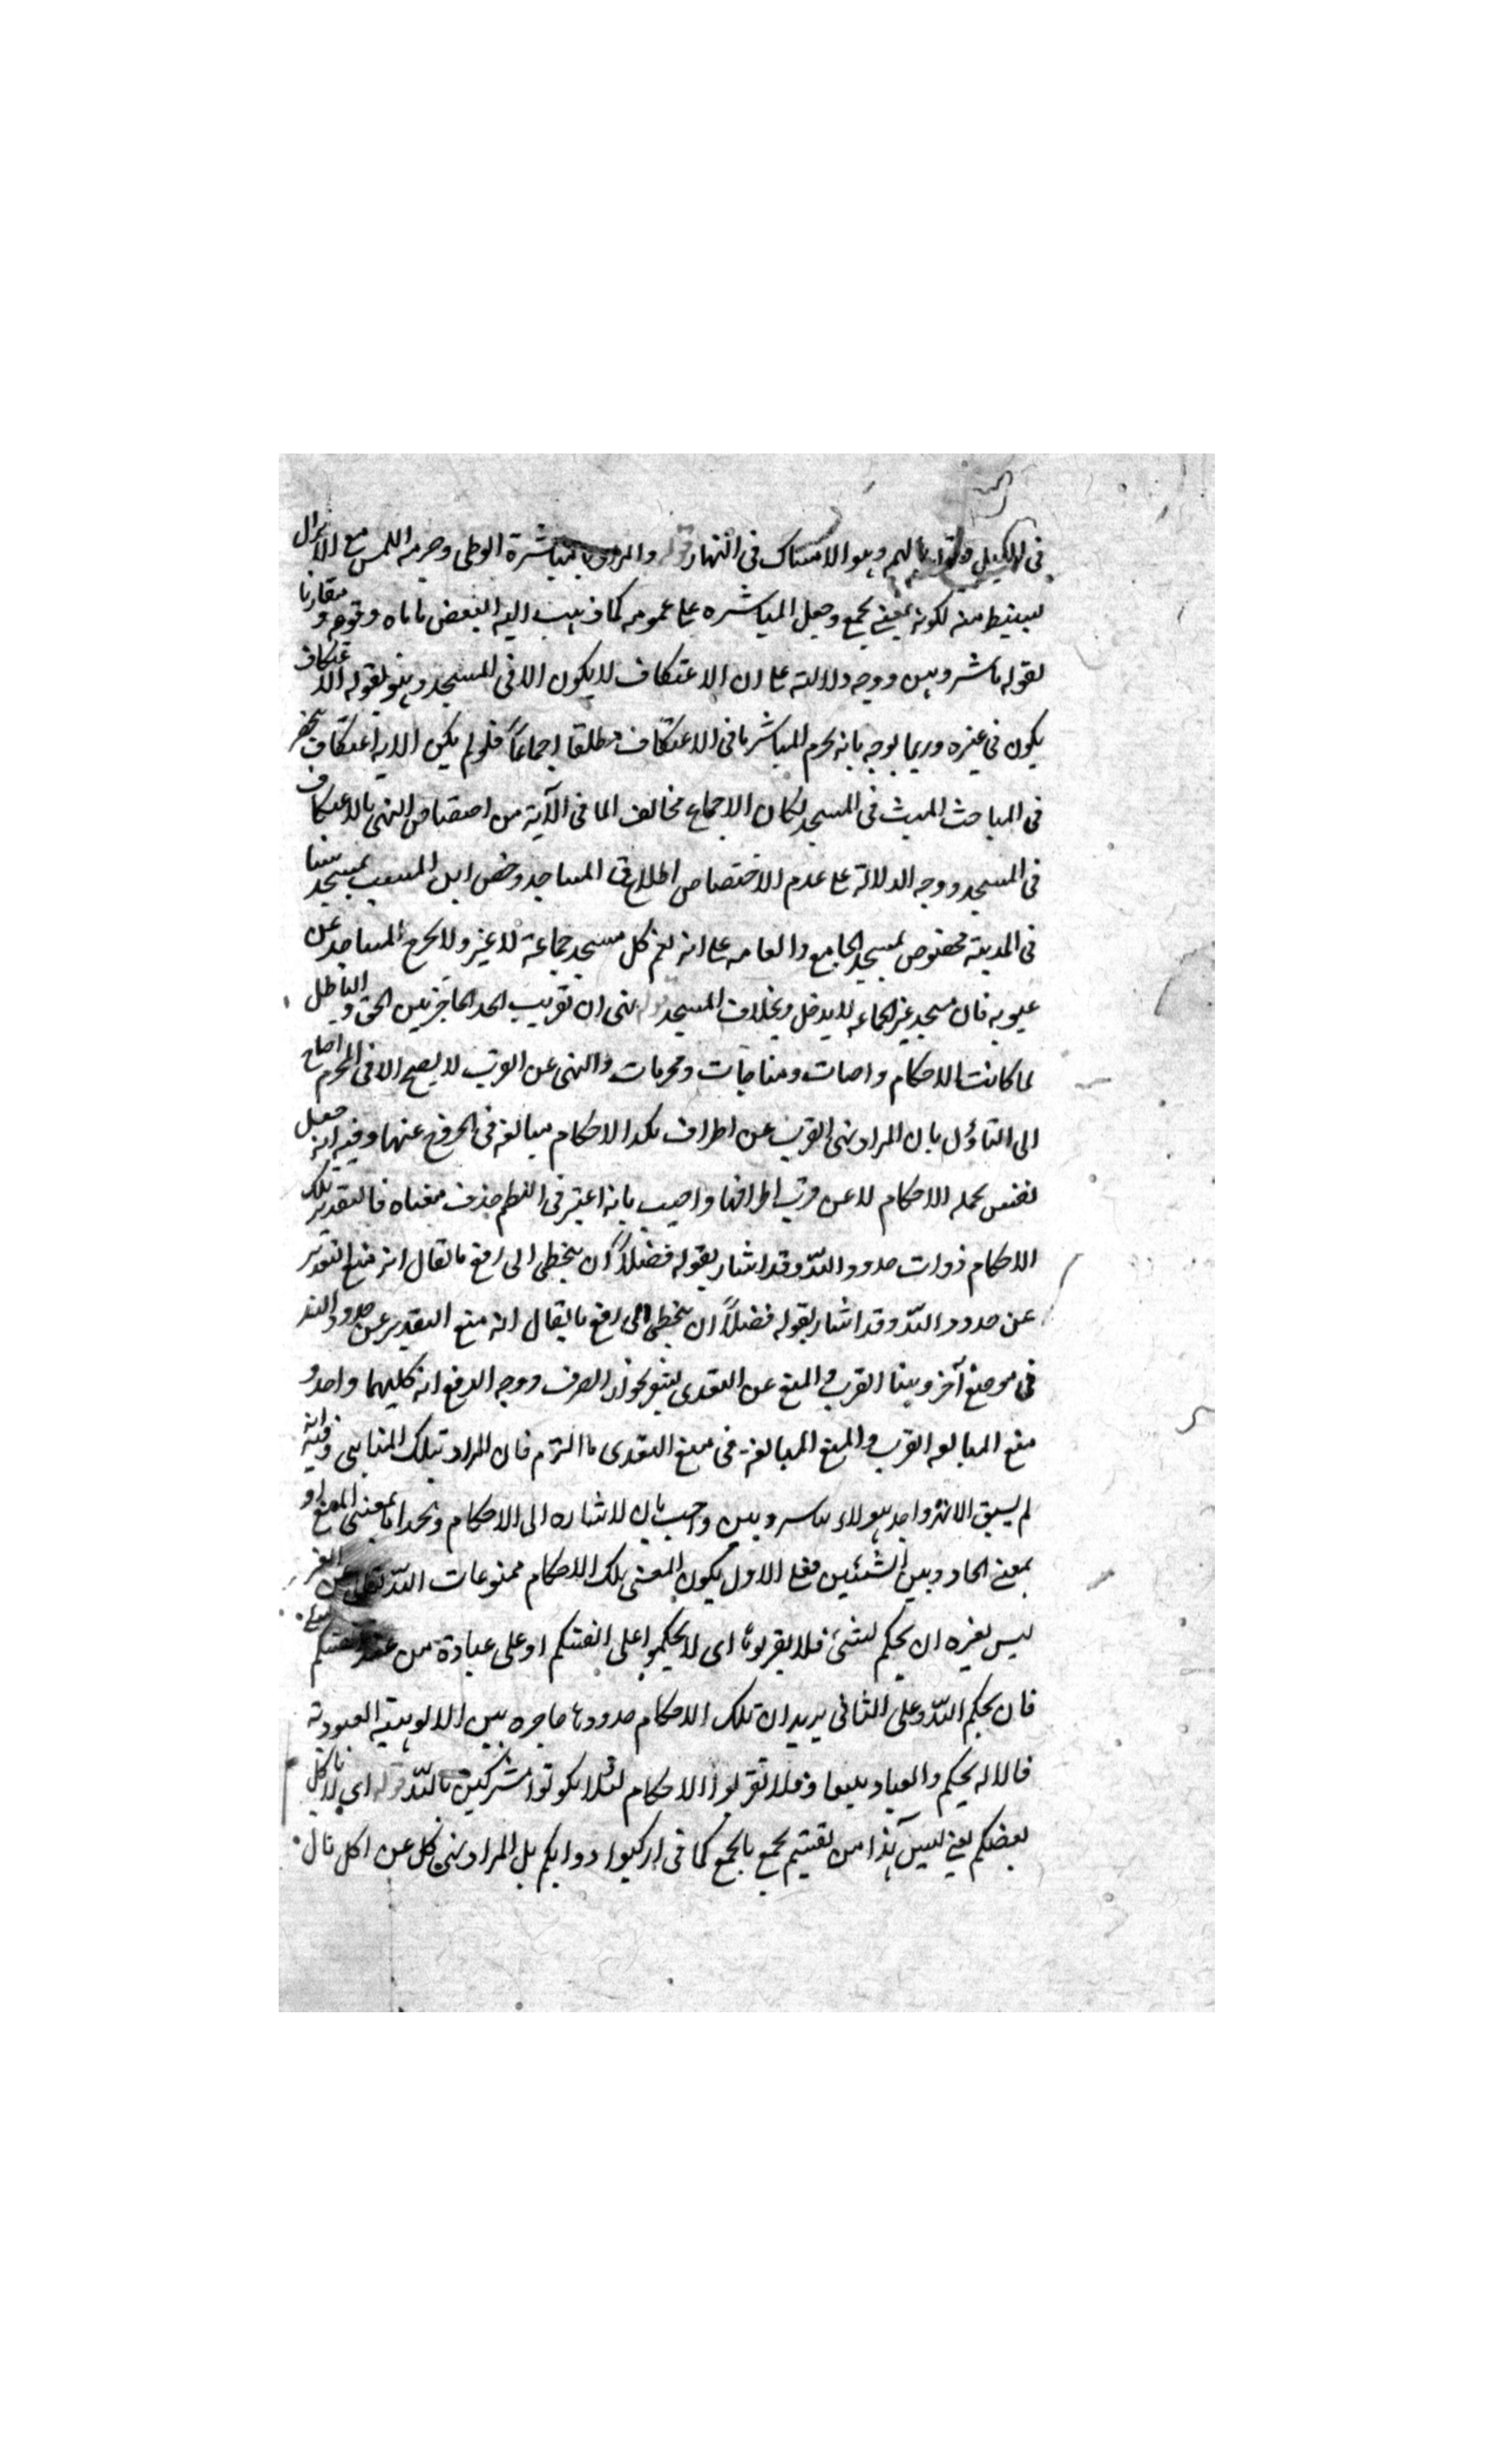 في الليل وهو الامساك في النهار قوله والمراد بالمباشرة الوطى وحرمة اللمس مع الانزال
يستنبط منه لكونه بمعنى يجمع وجعل المباشرة على عمومه كما ذهب اليه البعض ياباه وقوعه مقارنا و
لقوله باشروهن ووجه دلالته على ان الاعتكاف لا يكون الا في المسجد وهو لقوله الاعتكاف
يكون في غيره وربما يوجه بانه يحرم المباشرة في الاعتكاف مطلقا اجماعاً فلو لم يكن الاية اعتكاف
في المباحث المبث في المسجد لكان الاجماع مخالف لما في الآية من اختصاص النهي بالاعتكاف
في المسجد ووجه الدلالة على عدم الاختصاص اطلاق المساجد وخص ابن المسيب بمسجد
في المدينة مخصوص بمسجد الجامع والعامه على انه يعم كل مسجد جماعة لا غير ولا يخرج المساجد عن
عيوبه فان مسجد غير الجماعه لا يدخل وبخلاف المسجد قوله نهى ان تقريب الحد الحاجز بين الحق والباطل
لما كانت الاحكام واجبات ومناجات ومحرمات والنهي عن القرب لا يصح الا في المحرم احتاج
الى التاؤل بان المراد نهى القرب عن اطراف تلك الاحكام مبالغة في الخروج عنها وفيه انه جعل
نفس بحمله الاحكام لا عن قرب اطرافها واجيب بانه اعتبر في النظم حذف معناه فالتقدير تلك
الاحكام ذوات حدود اللّه وقد اشار بقوله فضلاً ان يتخطى الى رفع ما يقال انه منع التقدير
عن حدود اللّه وقد اشار بقوله فضلاً ان يتخطى الى رفع ما يقال انه منع التقدير عن حدود اللّه
في موضع آخر وبينا القرب والمنع عن التعدى يشعر بجواز الصرف ووجه الدفع انه كليهما واحد و
منع المبالغه القرب والمنع المبالغة في منع التعدى ما التزم فان المراد بتلك المناهى وفيه انه
لم يسبق الا نهى واحد هو لا تباشروهن واجيب بان لاشاره الى الاحكام والحد اما بمعنى المنع او
بمعنى الحاد وبين الشئين فعلى الاول يكون المعنى تلك الاحكام ممنوعات اللّه تعالى عن الغير
ليس لغيره ان يحكم لشئ فلا يقربوها اى لا يحكموا على انفسكم او على عبادة من عند انفسكم
فان يحكم اللّه وعلى الثانى يريد ان تلك الاحكام حدودها حاجزه بين الالوهيته العبودية
فالاله يحكم والعباد فلا تقربوا الاحكام لئلا يكونوا مشركين باللّه قوله اى لا ياكل
بعضكم يعني ليس هذا من تقسيم يجمع بالجمع كما في اركبوا دوابكم بل المراد نهى كل عن اكل مال